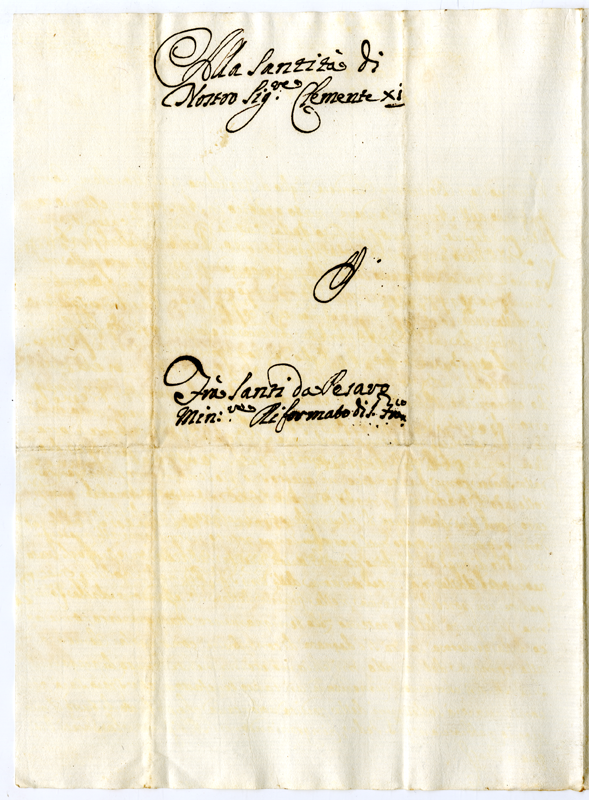 Alla Santità di
Nostro Sig.re Clemente xi
Frà Santi da Pesaro
Min:re Riformato di S. Fran.co